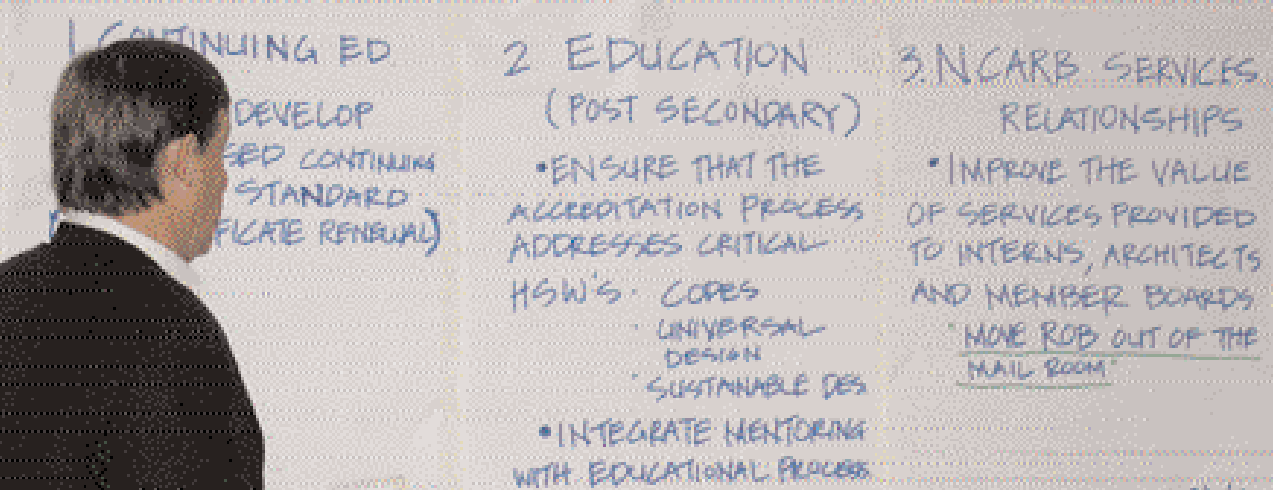 1. CONTINUING ED
DEVELOP
SED CONTINUING
STANDARD
FICATE RENEWAL)
2 EDUCATION
(POST SECONDARY)
• ENSURE THAT THE
ACCREDITATION PROCESS
ADDRESSES CRITICAL
HSW'S · CODES
· UNIVERSAL
DESIGN
· SUSTAINABLE DES
• INTEGRATE MENTORING
WITH EDUCATIONAL PROCESS
3. NCARB SERVICES
RELATIONSHIPS
• IMPROVE THE VALUE
OF SERVICES PROVIDED
TO INTERNS, ARCHITECTS
AND MEMBER BOARDS
"MOVE ROB OUT OF THE
MAIL ROOM"